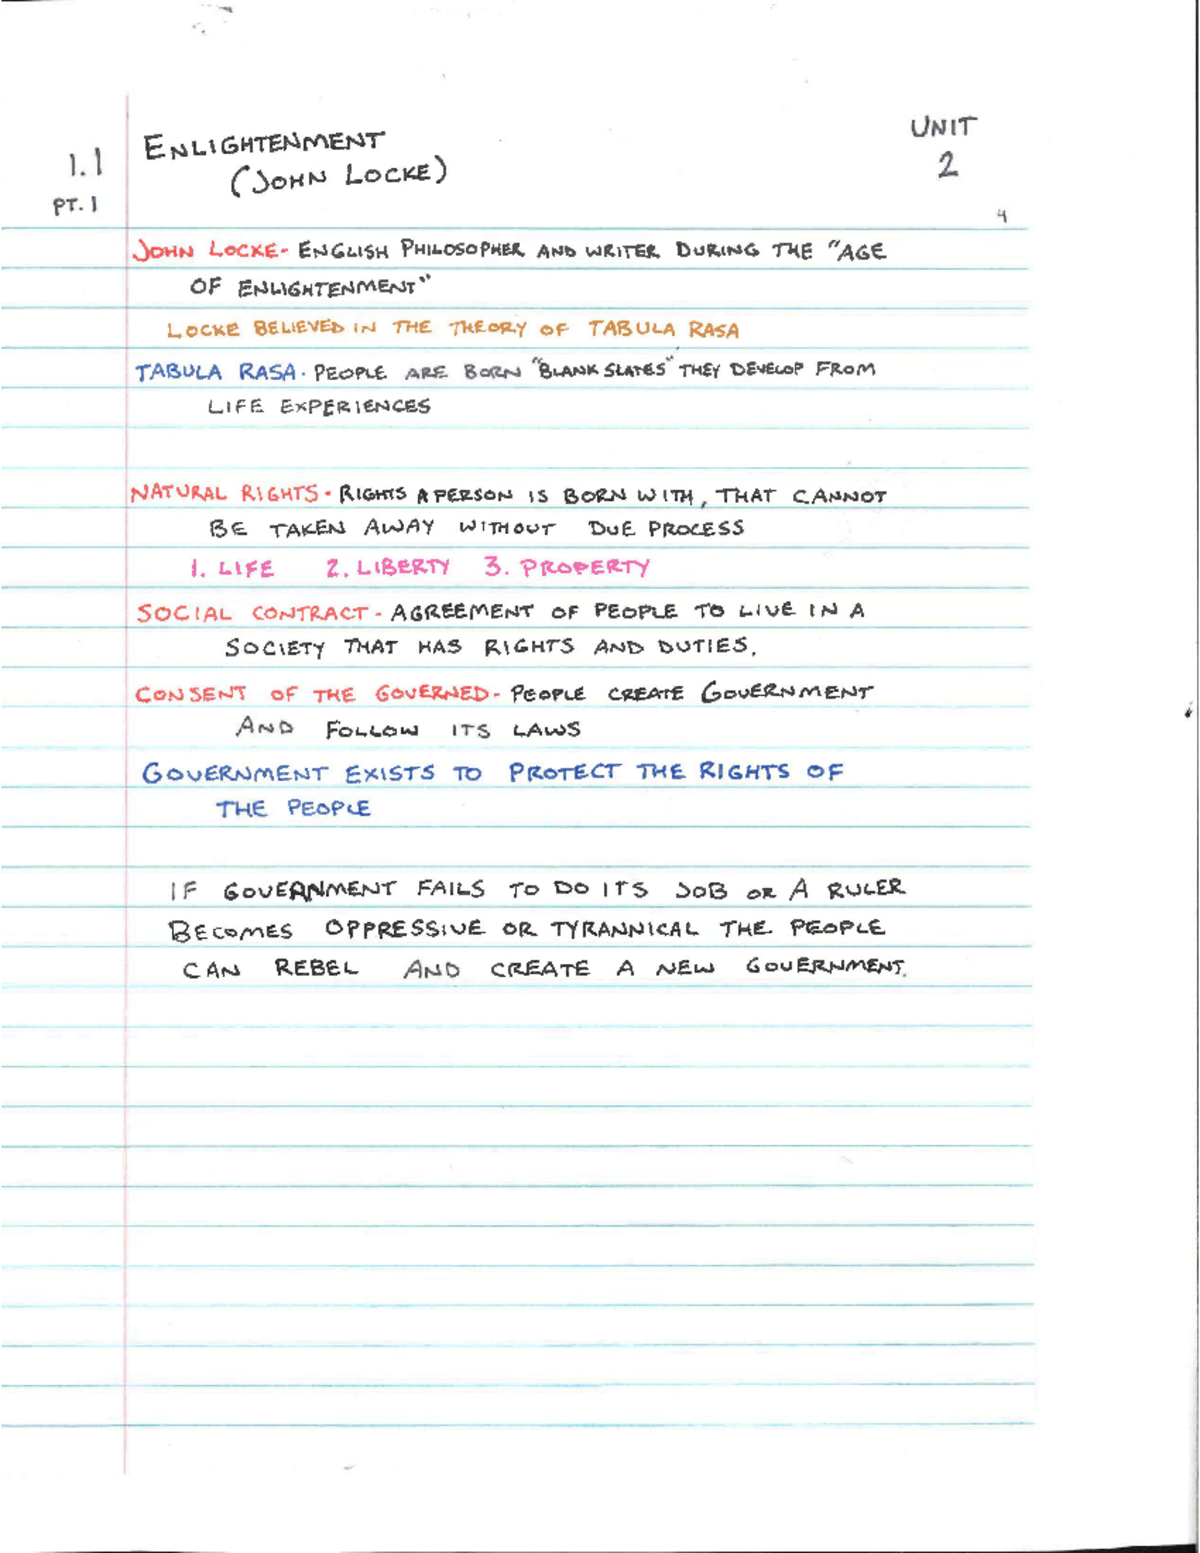 1.1 ENLIGHTENMENT UNIT
(JOHN LOCKE) 2
PT. 1
4
JOHN LOCKE- ENGLISH PHILOSOPHER AND WRITER DURING THE "AGE
OF ENLIGHTENMENT"
LOCKE BELIEVED IN THE THEORY OF TABULA RASA
TABULA RASA- PEOPLE ARE BORN "BLANK SLATES" THEY DEVELOP FROM
LIFE EXPERIENCES
NATURAL RIGHTS- RIGHTS A PERSON IS BORN WITH, THAT CANNOT
BE TAKEN AWAY WITHOUT DUE PROCESS
1. LIFE 2. LIBERTY 3. PROPERTY
SOCIAL CONTRACT- AGREEMENT OF PEOPLE TO LIVE IN A
SOCIETY THAT HAS RIGHTS AND DUTIES.
CONSENT OF THE GOVERNED- PEOPLE CREATE GOVERNMENT
AND FOLLOW ITS LAWS
GOVERNMENT EXISTS TO PROTECT THE RIGHTS OF
THE PEOPLE
IF GOVERNMENT FAILS TO DO ITS JOB OR A RULER
BECOMES OPPRESSIVE OR TYRANNICAL THE PEOPLE
CAN REBEL AND CREATE A NEW GOVERNMENT.